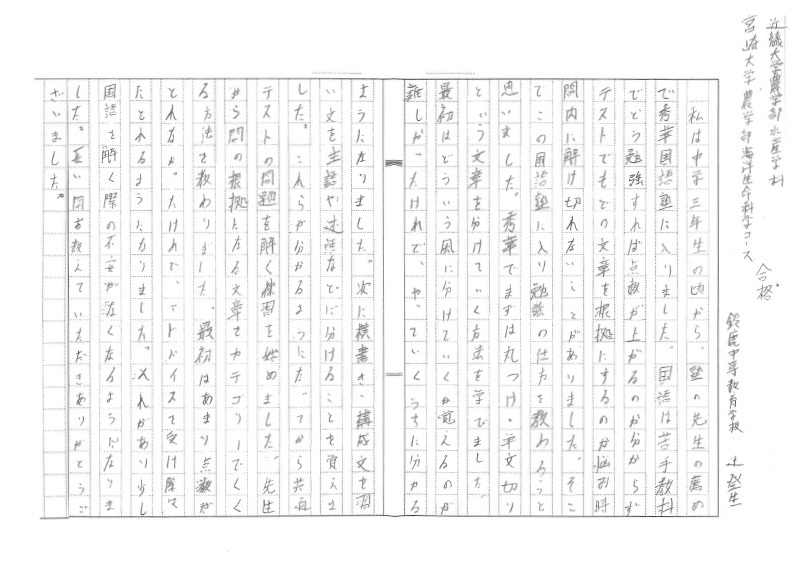 近畿大学農学部水産学科
宮崎大学農学部海洋生命科学コース 合格
鈴鹿中等教育学校 辻
私は中学三年生の頃から、塾の先生の薦め
で秀華国語塾に入りました。国語は苦手教科
でどう勉強すれば点数が上がるのか分からず
テストでもどの文章を根拠にするのか悩み時
間内に解け切れないことがありました。そこ
でこの国語塾に入り勉強の仕方を教わろうと
思いました。秀華でまずは丸つけ・単文切り
という文章を分けていく方法を学びました。
最初はどういう風に分けていくか覚えるのが
難しかったけれど、やっていくうちに分かる
ようになりました。次に横書き、構成文を習
い文を主語や述語などに分けることを覚えま
した。これらが分かるようになってから共通
テストの問題を解く練習を始めました。先生
から問の根拠となる文章をカテゴリーでくく
る方法を教わりました。最初はあまり点数が
とれなかったけれど、アドバイスを受け除々
たとれるようになりました。それがあり少し
国語を解く際の不安が無くなるようになりま
した。長い間お教えていただきありがとうご
ざいました。